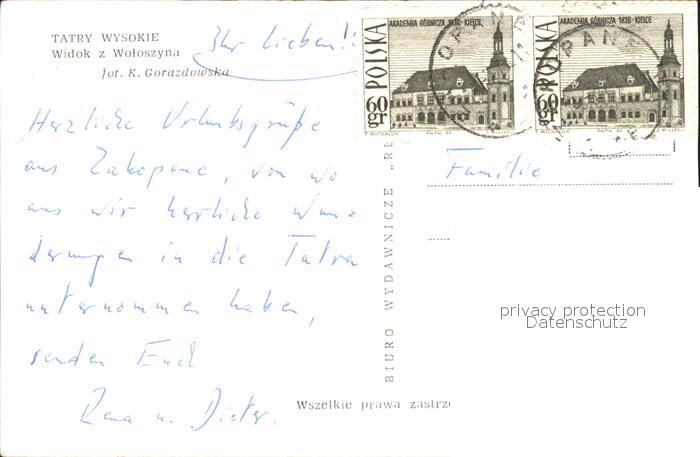 TATRY WYSOKIE
Widok z Wołoszyna
fot. K. Gorazdowska
Ihr Lieben!!
Herzliche Urlaubsgrüße
aus Zakopane, von wo
aus wir herrliche Wan=
derungen in die Tatra
unternommen haben,
senden Euch
Rena u. Dieter.
BIURO WYDAWNICZE „RU
Wszelkie prawa zastrz
AKADEMIA GÓRNICZA 1816-KIELCE
POLSKA
60 gr
T. MICHALUK PWPW. 66 J. MILLER
AKADEMIA GÓRNICZA 1816-KIELCE
POLSKA
60 gr
T. MICHALUK PWPW. 66 J. MILLER
OPANE
OPANE
Familie
privacy protection
Datenschutz